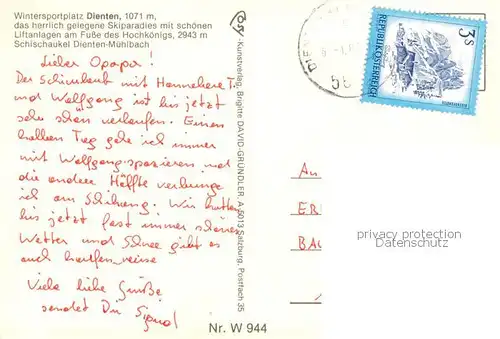 Wintersportplatz Dienten, 1071 m,
das herrlich gelegene Skiparadies mit schönen
Liftanlagen am Fuße des Hochkönigs, 2943 m
Schischaukel Dienten-Mühlbach
Lieber Opapa!
Der Schiurlaub mit Hannehere T.
und Wolfgang ist bis jetzt
sehr schön verlaufen. Einen
halben Tag gehe ich immer
mit Wolfgang spazieren und
die andere Hälfte verbringe
ich am Skihang. Wir hatten
bis jetzt fast immer schönes
Wetter und Schnee gibt es
auch haufenweise
Viele liebe Grüße
sendet Dir Sigrid
Kunstverlag, Brigitte DAVID-GRÜNDLER, A 5013 Salzburg, Postfach 35
Nr. W 944
DIEN
55
REPUBLIK ÖSTERREICH
3S
An
ER
BA
privacy protection
Datenschutz